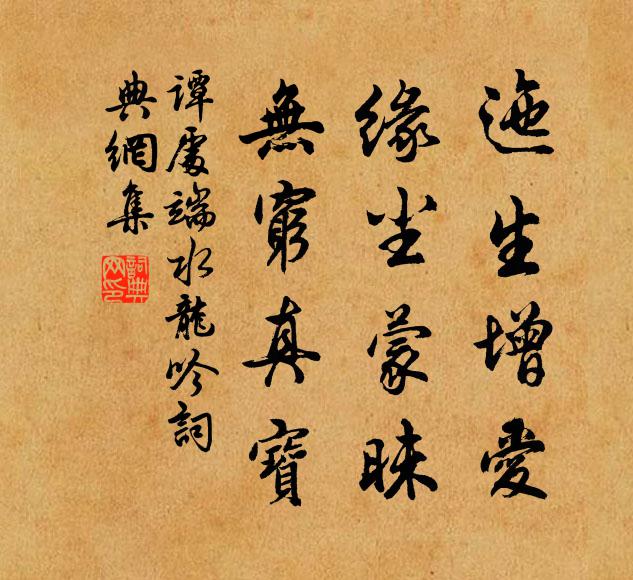 迤生增愛
緣尘蒙昧
無窮真寶
譚處端水龍吟詞
典網集
詞典网印